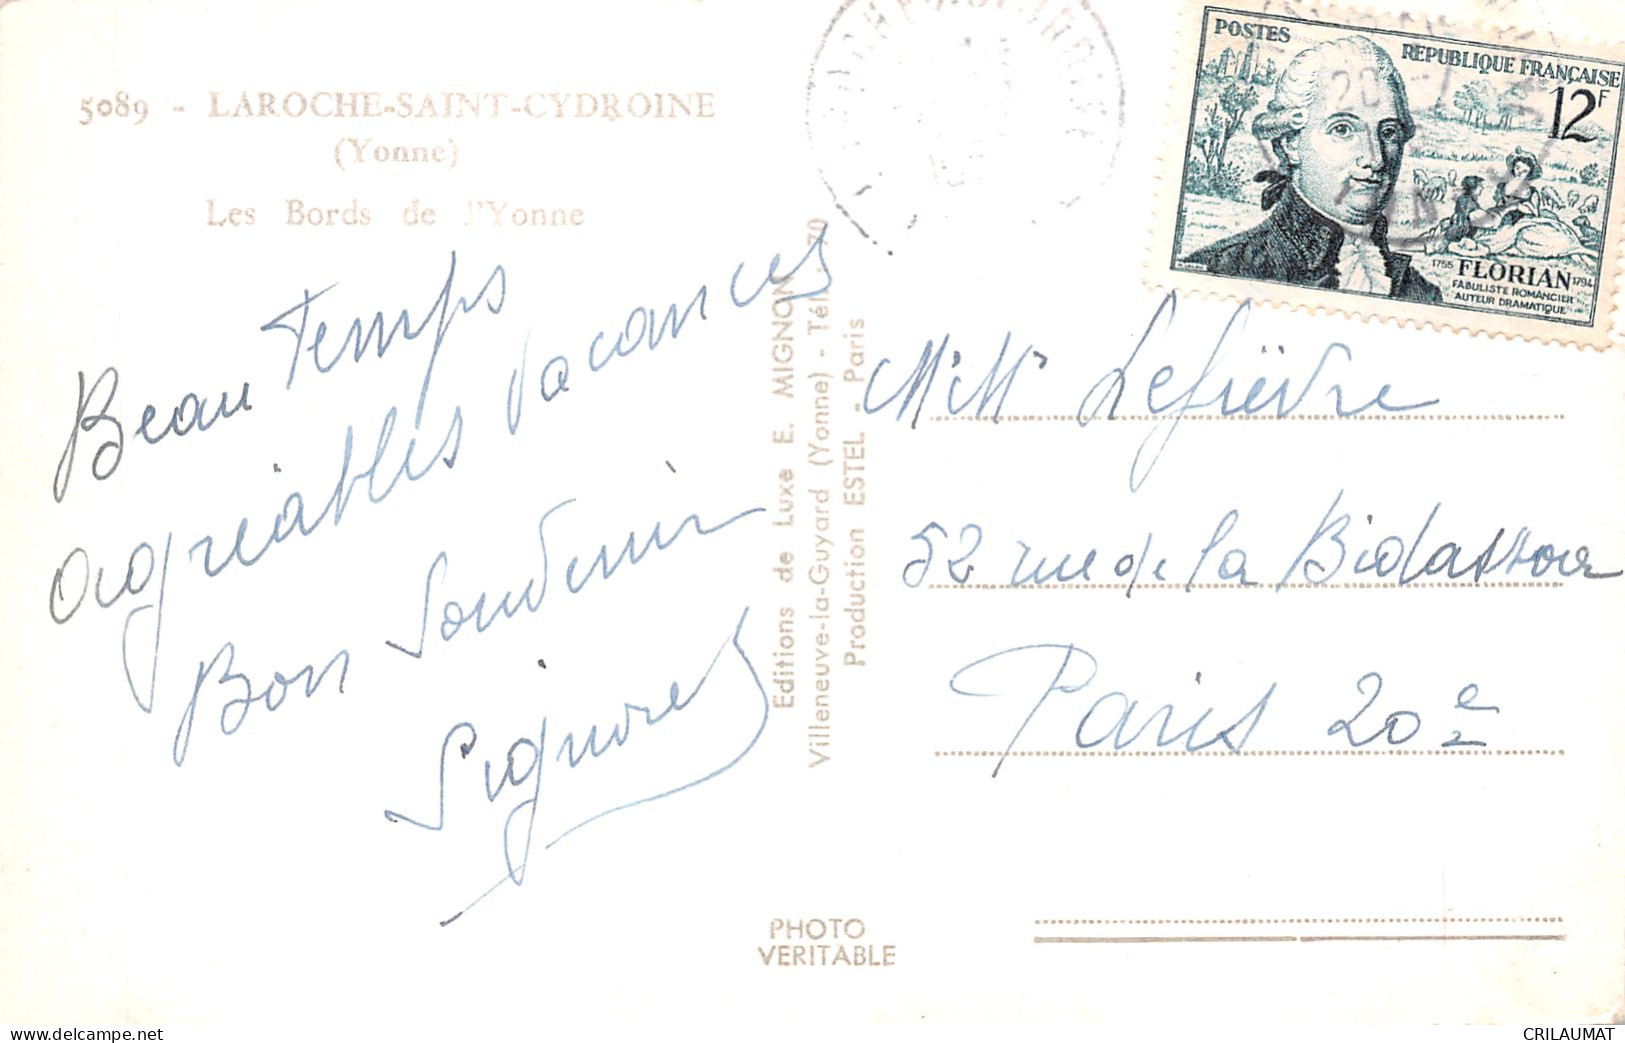 5089 - LAROCHE-SAINT-CYDROINE
(Yonne)
Les Bords de l'Yonne
Beau Temps
agréables Vacances
Bon Souvenir
Editions de Luxe E. MIGNON
Villeneuve-la-Guyard (Yonne) - Tél. 70
Production ESTEL - Paris
PHOTO
VERITABLE
POSTES
REPUBLIQUE FRANÇAISE
12F
1755 FLORIAN 1794
FABULISTE ROMANCIER
AUTEUR DRAMATIQUE
Lefièvre
52 rue de la Bidassoa
Paris 20e
delcampe.net
CRILAUMAT